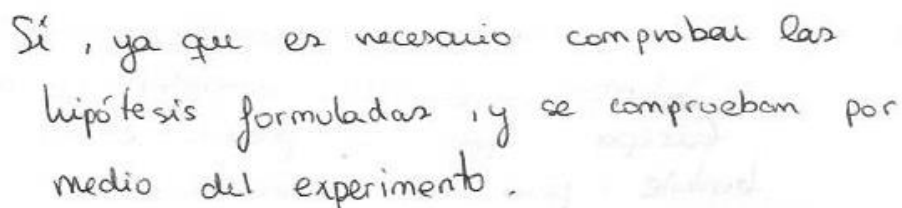 Sí, ya que es necesario comprobar las
hipótesis formuladas, y se comprueban por
medio del experimento.